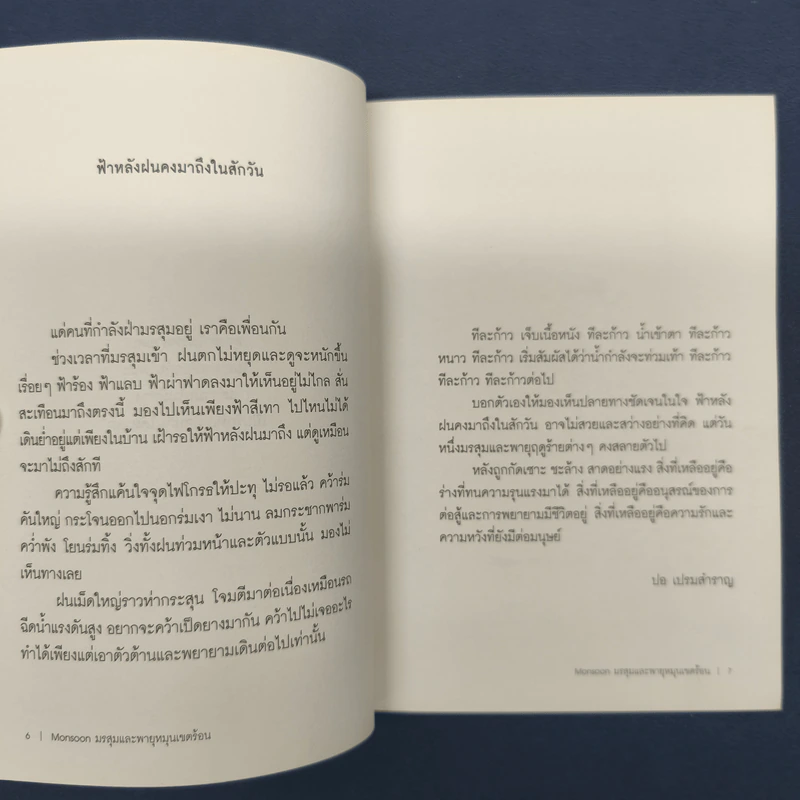 ฟ้าหลังฝนคงมาถึงในสักวัน
แด่คนที่กำลังฝ่ามรสุมอยู่ เราคือเพื่อนกัน
ช่วงเวลาที่มรสุมเข้า ฝนตกไม่หยุดและดูจะหนักขึ้น
เรื่อยๆ ฟ้าร้อง ฟ้าแลบ ฟ้าผ่าฟาดลงมาให้เห็นอยู่ไม่ไกล สั่น
สะเทือนมาถึงตรงนี้ มองไปเห็นเพียงฟ้าสีเทา ไปไหนไม่ได้
เดินย่ำอยู่แต่เพียงในบ้าน เฝ้ารอให้ฟ้าหลังฝนมาถึง แต่ดูเหมือน
จะมาไม่ถึงสักที
ความรู้สึกแค้นใจจุดไฟโกรธให้ปะทุ ไม่รอแล้ว คว้าร่ม
คันใหญ่ กระโจนออกไปนอกร่มเงา ไม่นาน ลมกระชากพาร่ม
คว่ำพัง โยนร่มทิ้ง วิ่งทั้งฝนท่วมหน้าและตัวแบบนั้น มองไม่
เห็นทางเลย
ฝนเม็ดใหญ่ราวห่ากระสุน โจมตีมาต่อเนื่องเหมือนรถ
ฉีดน้ำแรงดันสูง อยากจะคว้าเป็ดยางมากัน คว้าไปไม่เจออะไร
ทำได้เพียงแต่เอาตัวต้านและพยายามเดินต่อไปเท่านั้น
6 | Monsoon มรสุมและพายุหมุนเขตร้อน
ทีละก้าว เจ็บเนื้อหนัง ทีละก้าว น้ำเข้าตา ทีละก้าว
หนาว ทีละก้าว เริ่มสัมผัสได้ว่าน้ำกำลังจะท่วมเท้า ทีละก้าว
ทีละก้าว ทีละก้าวต่อไป
บอกตัวเองให้มองเห็นปลายทางชัดเจนในใจ ฟ้าหลัง
ฝนคงมาถึงในสักวัน อาจไม่สวยและสว่างอย่างที่คิด แต่วัน
หนึ่งมรสุมและพายุฤดูร้ายต่างๆ คงสลายตัวไป
หลังถูกกัดเซาะ ชะล้าง สาดอย่างแรง สิ่งที่เหลืออยู่คือ
ร่างที่ทนความรุนแรงมาได้ สิ่งที่เหลืออยู่คืออนุสรณ์ของการ
ต่อสู้และการพยายามมีชีวิตอยู่ สิ่งที่เหลืออยู่คือความรักและ
ความหวังที่ยังมีต่อมนุษย์
ปอ เปรมสำราญ
Monsoon มรสุมและพายุหมุนเขตร้อน | 7